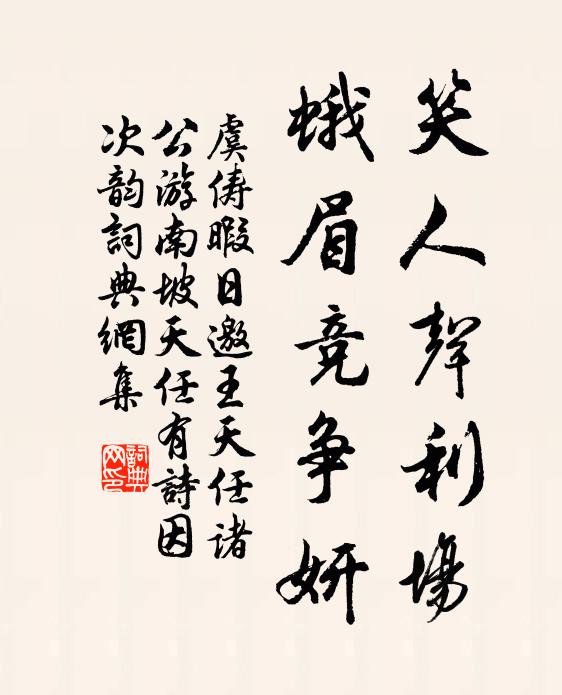 笑人聲利場
蛾眉竞争妍
虞儔暇日邀王天任诸
公游南坡天任有詩因
次韵詞典網集
詞典网印